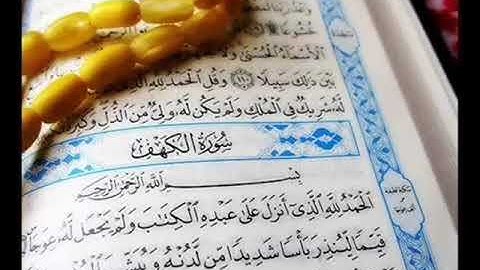 خُشُوعًا
الْأَسْمَاءُ الْحُسْنَىٰ وَلَا
بَيْنَ ذَٰلِكَ سَبِيلًا ۝١١٠ وَقُلِ الْحَمْدُ لِلَّهِ الَّذِي
لَّهُ شَرِيكٌ فِي الْمُلْكِ وَلَمْ يَكُن لَّهُ وَلِيٌّ مِّنَ الذُّلِّ وَكَبِّرْهُ
سُورَةُ الْكَهْفِ
بِسْمِ اللَّهِ الرَّحْمَٰنِ الرَّحِيمِ
الْحَمْدُ لِلَّهِ الَّذِي أَنزَلَ عَلَىٰ عَبْدِهِ الْكِتَابَ وَلَمْ يَجْعَل لَّهُ عِوَجًا
قَيِّمًا لِّيُنذِرَ بَأْسًا شَدِيدًا مِّن لَّدُنْهُ وَيُبَشِّرَ